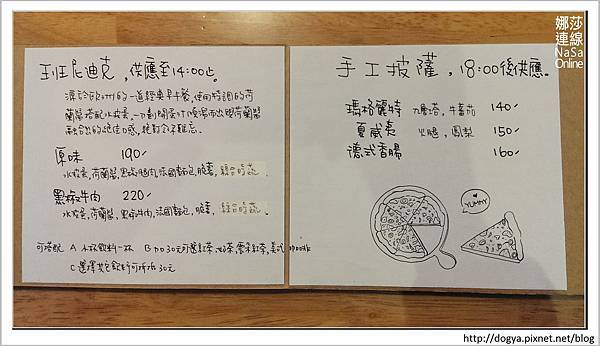 班尼迪克，供應至14:00止。
源於的一道經典早午餐，使用特調的荷
蘭醬搭配水波蛋，一刀劃開蛋
融合出的絕佳口感，絕對令人難忘。
原味 190/
水波蛋，荷蘭醬，法國麵包，脆薯，綜合時蔬。
黑椒牛肉 220/
水波蛋，荷蘭醬，黑椒牛肉，法國麵包，脆薯，綜合時蔬。
可搭配 A 冰飲料一杯 B 加30元可選紅茶，奶茶，紅茶，美式
C 選擇其它飲料可折抵30元
手工披薩，18:00後供應。
瑪格麗特 九層塔，牛蕃茄 140/
夏威夷 火腿，鳳梨 150/
德式香腸 160/
YUMMY
娜莎
連線
NaSa
Online
http://dogya.pixnet.net/blog